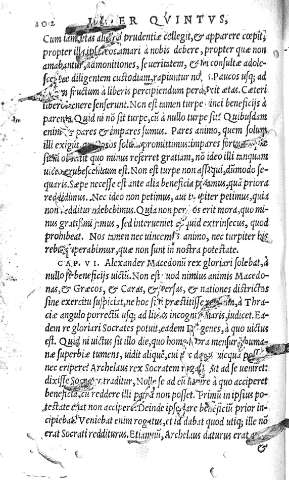 202 LIBER QVINTVS,
Cum iam ætas aliquid prudentiæ collegit, & apparere cœpit,
propter illa ipsa eos amari à nobis debere, propter quæ non
amabantur, admonitiones, seueritatem, & inconsultæ adole-
scentiæ diligentem custodiam, rapiuntur nobis. Paucos usq; ad
fructum à liberis percipiendum perduxit ætas. Cæteri
liberos onere senserunt. Non est tamen turpe uinci beneficijs à
parente. Quid ni nō sit turpe, cū à nullo turpe sit? Quibusdam
enim pares & impares sumus. Pares animo, quem solum
illi exigunt, nos solum promittimus: impares fortuna
obstitit quo minus referret gratiam, nō ideo illi tanquam
uicto erubescendum est. Non est turpe non assequi, dummodo se-
quaris. Sæpe necesse est ante alia beneficia petamus, quā priora
reddidimus. Nec ideo non petimus, aut turpiter petimus, quia
non reddituri debebimus. Quia non per nos erit mora, quo mi-
nus grati simus, sed interueniet quid extrinsecus, quod
prohibeat. Nos tamen nec uincemur animo, nec turpiter his
rebus superabimur, quæ non sunt in nostra potestate.
CAP. VI. Alexander Macedonū rex gloriari solebat, à
nullo se beneficijs uictū. Non est quod nimius animis Macedo-
nas, & Græcos, & Caras, & Persas, & nationes districtas
sine exercitu suspiciat, ne hoc sibi præstitisse regnum, à Thra-
ciæ angulo porrectū usq; ad litus incogniti maris, iudicet. Ea-
dem re gloriari Socrates potuit, eadem Diogenes, à quo uictus
est. Quid ni uictus sit illo die, quo homo supra mensuram huma-
næ superbiæ tumens, uidit aliquē, cui nec dare quicquā posset,
nec eripere? Archelaus rex Socratem rogauit ut ad se ueniret:
dixisse Socrates traditur, Nolle se ad eū uenire à quo acciperet
beneficia, cū reddere illi paria non posset. Primū in ipsius po-
testate erat non accipere. Deinde ipse dare beneficiū prior in-
cipiebat. Veniebat enim rogatus, et id dabat quod utiq; ille nō
erat Socrati redditurus. Etiamnū, Archelaus daturus erat
&